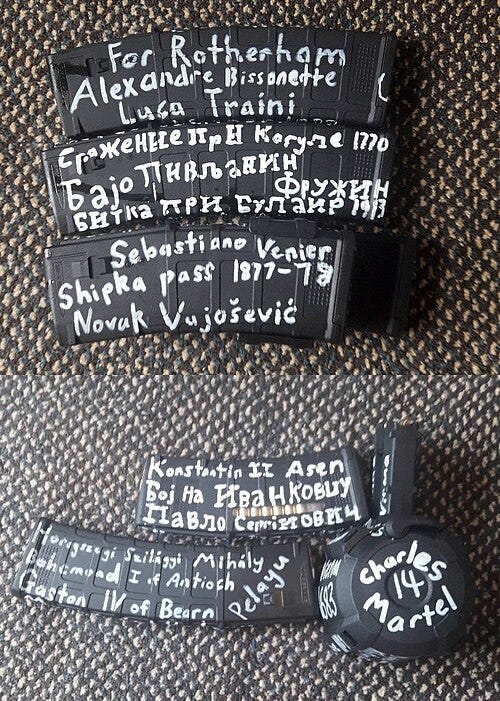 For Rotherham
Alexandre Bissonette
Luca Traini
Сражение При Кагуле 1770
Бајо Пивљанин
Фружин
Битка при Булаир 1913
Sebastiano Venier
Shipka pass 1877-78
Novak Vujošević
Konstantin II Asen
Бој на Иванковцу
Павло
Szilágyi Mihály
Bohemond I of Antioch
Gaston IV of Bearn
Pelayu
Charles
14
Martel